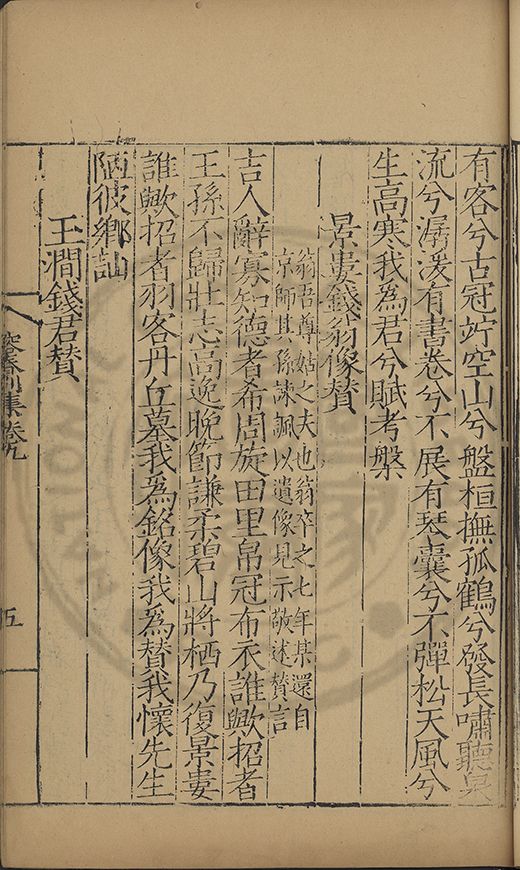 有客兮古冠竚空山兮盤桓撫孤鶴兮發長嘯聽泉
流兮潺湲有書卷兮不展有琴囊兮不彈松天風兮
生高寒我為君兮賦考槃
景婁錢翁像贊
翁吾尊姑之夫也翁卒之七年某還自
京師其孫諫諷以遺像見示敬述贊言
吉人辭寡知德者希周旋田里帛冠布衣誰歟招者
王孫不歸壯志高逸晚節謙柔碧山將栖乃復景婁
誰歟招者羽客丹丘墓我為銘像我為贊我懷先生
陋彼鄉訕
玉澗錢君贊
容春別集卷九
五